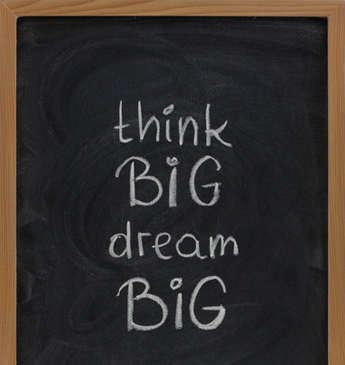 think
BiG
dream
BiG